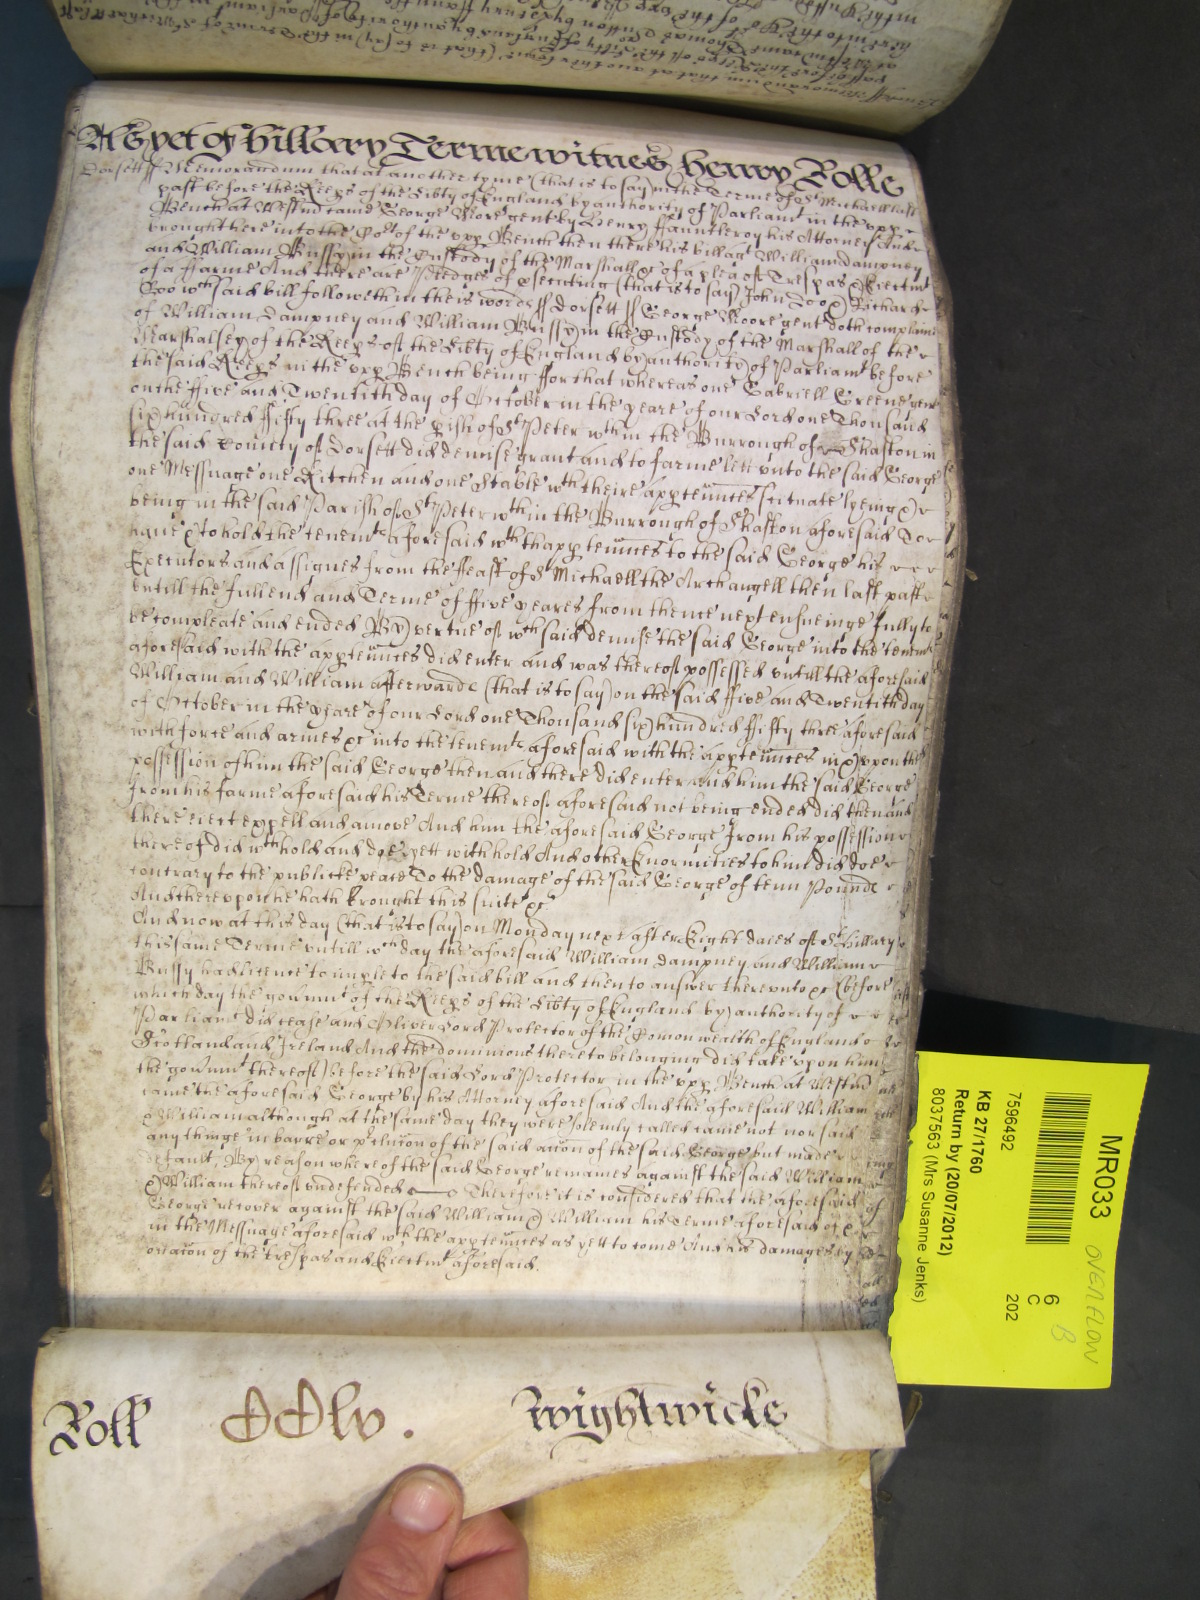 As yet of Hillary Terme witnes Henry Rolle
Dorsett ss Memorandum that at another tyme (that is to say) in the Terme of St Michaell last
past before the Keeps of the Libty of England by authority of Parliamt in the upp
Bench at Westm came George Moore gent by Henry ffauntleroy his Attorney And
brought here into the Cort of the upp Bench then there his bill agt William Dampney
and William Bussy in the Custody of the Marshall &c of a plea of Trespas & Eiectmt
of a ffarme And there are Pledges of psecuting (that is to say) John Doo & Richard
Roo wch said bill followeth in theis words ss Dorsett ss George Moore gent doth complaine
of William Dampney and William Bussy in the Custody of the Marshall of the
Marshalsey of the Keeps of the Libty of England by authority of Parliamt before
the said Keeps in the upp Bench being ffor that whereas one Gabriell Greene gent
on the ffive and Twentith day of October in the yeare of our Lord one Thousand
six hundred ffifty three at the pish of St Peter wthin the Burrough of Shaston in
the said County of Dorsett did demise grant and to farme lett unto the said George
one Messuage one Kitchen and one Stable wth theire apptennces scituate lyeing &
being in the said Parish of St Peter wthin the Burrough of Shaston aforesaid To
haue & to hold the tenemts aforesaid wth thapptennces to the said George his
Executors and assignes from the ffeast of St Michaell the Archangell then last past
untill the full end and Terme of ffive yeares from thence next ensueinge fully to
be compleate and ended By vertue of wch said demise the said George into the tenemts
aforesaid with the apptennces did enter and was thereof possessed untill the aforesaid
William and William afterwards (that is to say) on the said ffive and Twentith day
of October in the yeare of our Lord one Thousand six hundred ffifty three aforesaid
with force and armes &c into the tenemts aforesaid with the apptennces in & upon the
possession of him the said George then and there did enter and him the said George
from his farme aforesaid his Terme thereof aforesaid not being ended did then and
there eiect expell and amove And him the aforesaid George from his possession
thereof did wthhold and doe yett withhold And other Enormities to him did doe
contrary to the publicke peace To the damage of the said George of tenn Pounds
And thereupon he hath brought this suite &c
And now at this day (that is to say) on Monday next after Eight daies of St Hillary
this same Terme untill wch day the aforesaid William Dampney and William
Bussy had licence to imple to the said bill and then to answer thereunto &c (before
which day the govmt of the Keeps of the Libty of England by authority of
Parliamt did cease and Oliver Lord Protector of the Comonwealth of England
Scotland and Ireland And the dominions thereto belonging did take upon him
the govmt thereof) before the said Lord Protector in the upp Bench at Westm
came the aforesaid George by his Attorney aforesaid And the aforesaid William
& William although at the same day they were solemly called came not nor said
any thinge in barre or pclucon of the said accon of the said George but made
default, By reason whereof the said George remaines against the said William
& William thereof undefended Therefore it is considered that the aforesaid
George recover against the said William & William his Terme aforesaid of &
in the Messuage aforesaid wth the apptennces as yett to come And his damages by
occacon of the Trespas and Eiectmt aforesaid.
Roll CClv. Wightwicke
MR033
7596492
KB 27/1760
Return by (20/07/2012)
8037563 (Mrs Susanne Jenks)
6
C
202
OVERFLOW
B